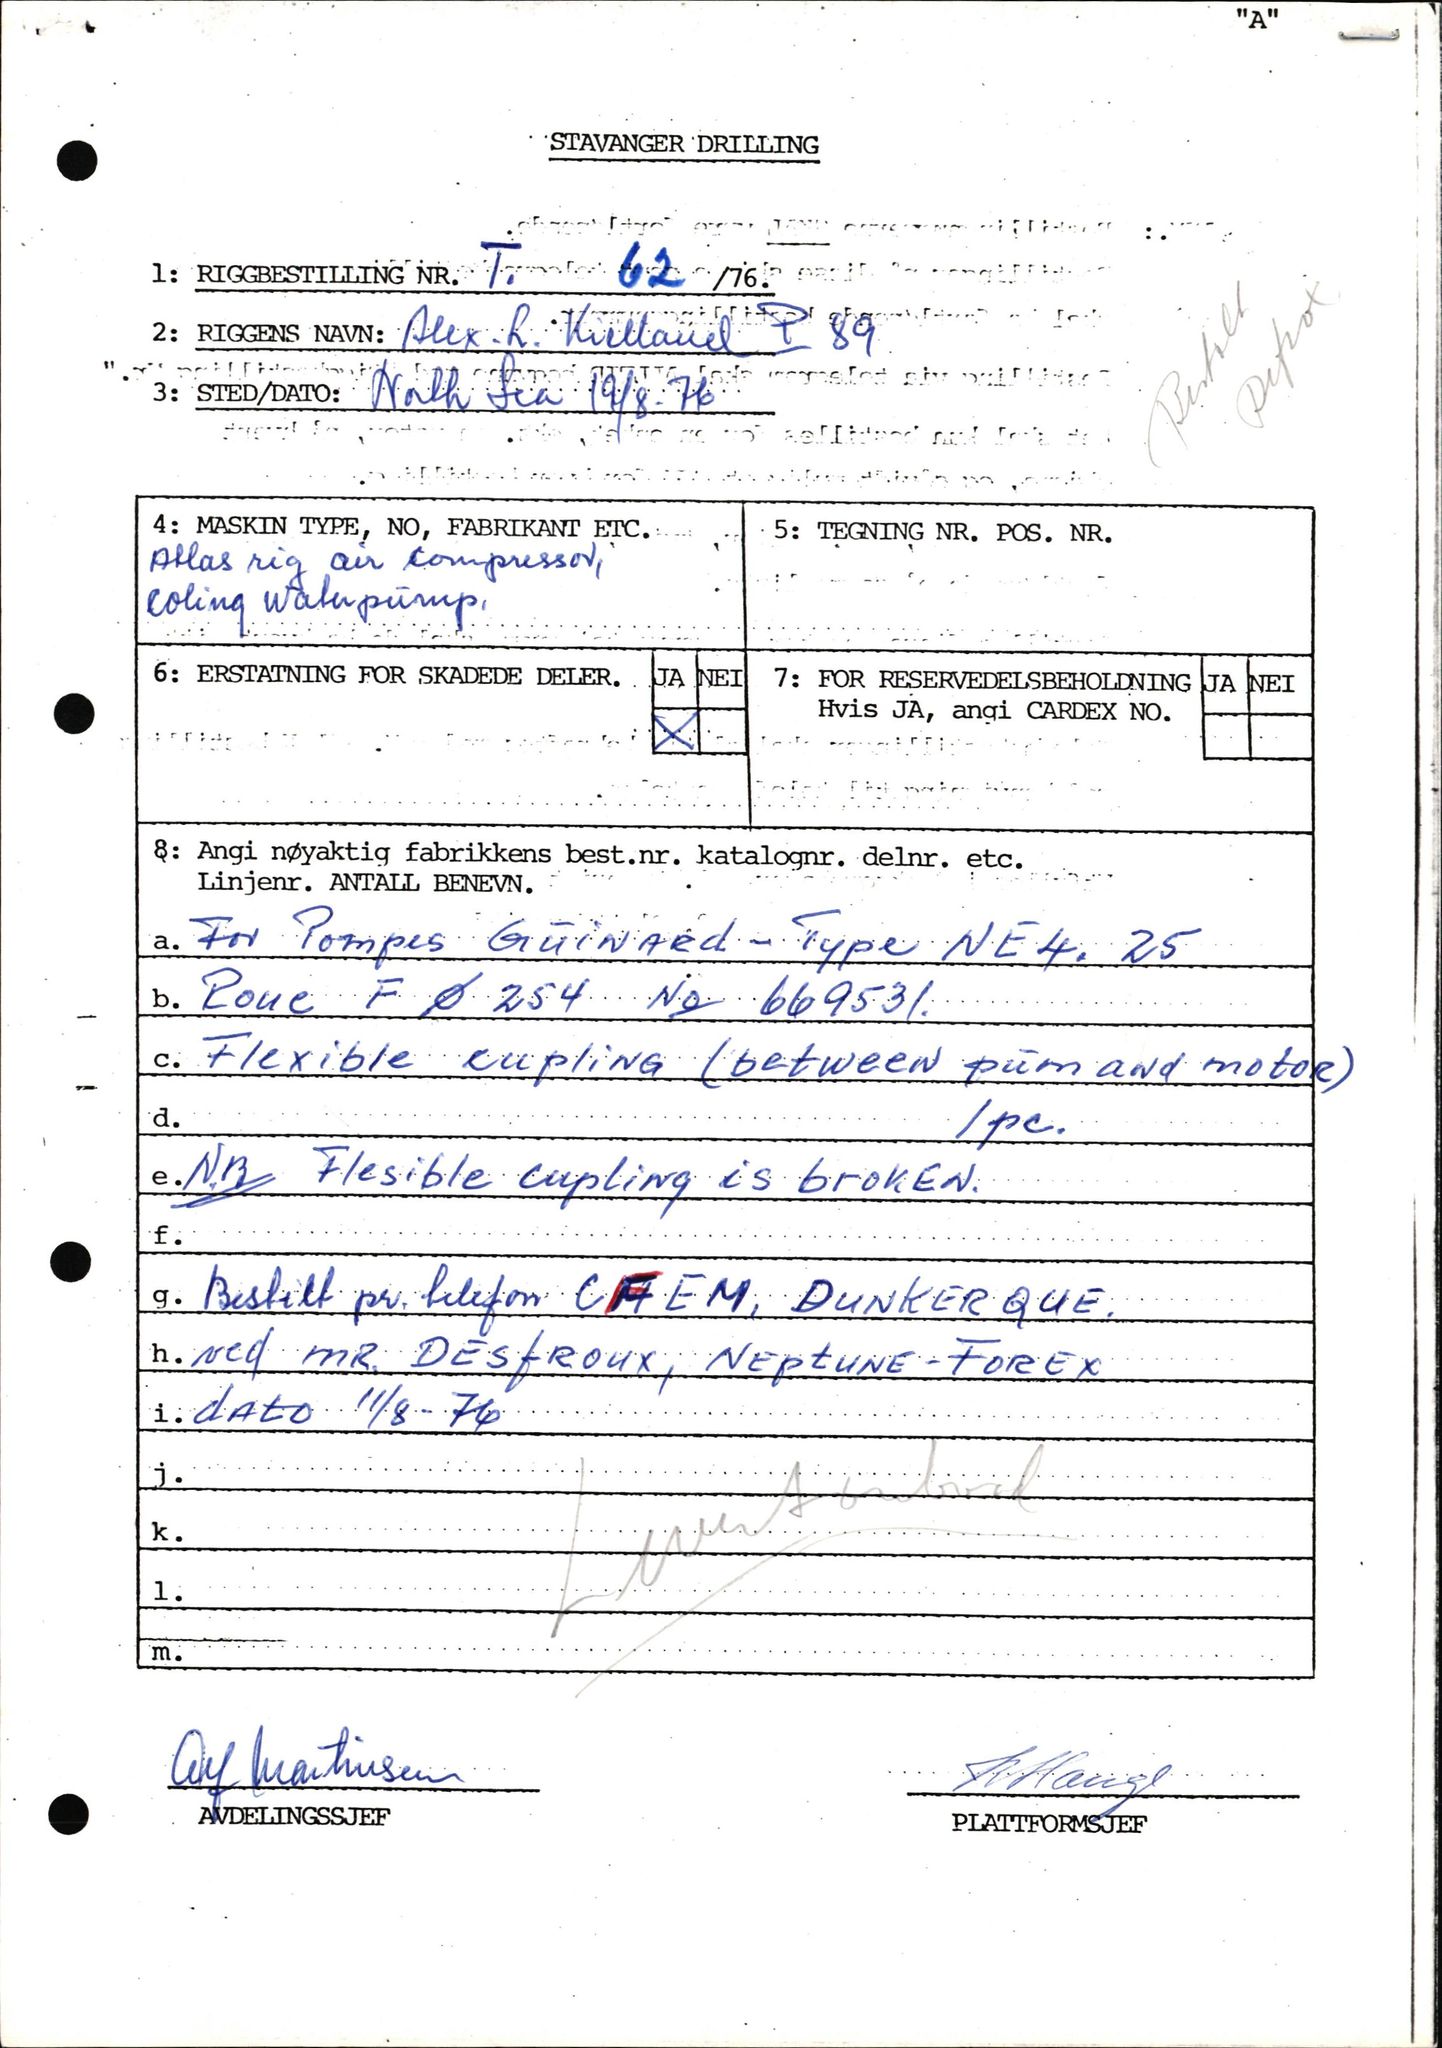 "A"
STAVANGER DRILLING
1: RIGGBESTILLING NR. T. 62 /76.
2: RIGGENS NAVN: Alex. L. Kielland P 89
3: STED/DATO: North Sea 19/8-76
Bestilt
Depot
4: MASKIN TYPE, NO, FABRIKANT ETC.
Atlas rig air compressor,
coling Waterpump.
5: TEGNING NR. POS. NR.
6: ERSTATNING FOR SKADEDE DELER. JA NEI
X
7: FOR RESERVEDELSBEHOLDNING JA NEI
Hvis JA, angi CARDEX NO.
8: Angi nøyaktig fabrikkens best.nr. katalognr. delnr. etc.
Linjenr. ANTALL BENEVN.
a. For Pompes GUINARD - Type NE4. 25
b. Roue F Ø 254 No 669531.
c. Flexible cupling (between pum and motor)
d. 1 pc.
e. N.B Flesible cupling is broken.
f.
g. Bestilt pr. telefon CFEM, DUNKERQUE.
h. ved MR. DESFROUX, NEPTUNE-FOREX
i. dato 11/8-76
j.
k.
l.
m.
Alf Martinsen
AVDELINGSSJEF
PLATTFORMSJEF